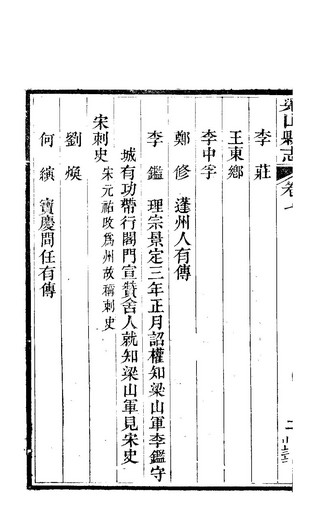 梁山縣志 卷七
李 莊
王東鄉
李中孚
鄭 修 蓬州人有傳
李 鑑 理宗景定三年正月詔權知梁山軍李鑑守
城有功帶行閤門宣贊舍人就知梁山軍見宋史
宋刺史 宋元祐改爲州故稱刺史
劉 煥
何 縯 寶慶間任有傳